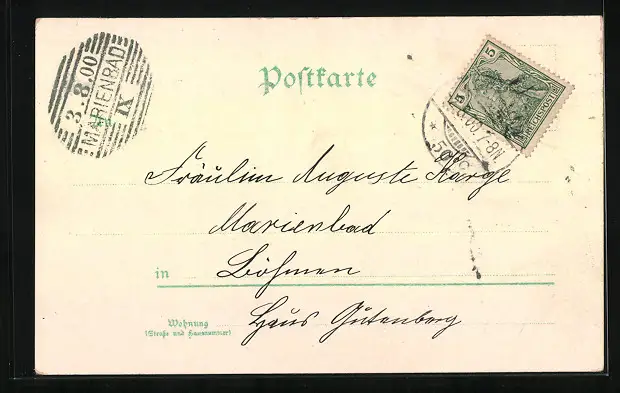 3.8.00
MARIENBAD
IX
Postkarte
5
5
REICHSPOST
7-8N.
Fräulin Auguste Karge
Marienbad
in Böhmen
Wohnung
(Straße und Hausnummer)
Haus Gutenberg